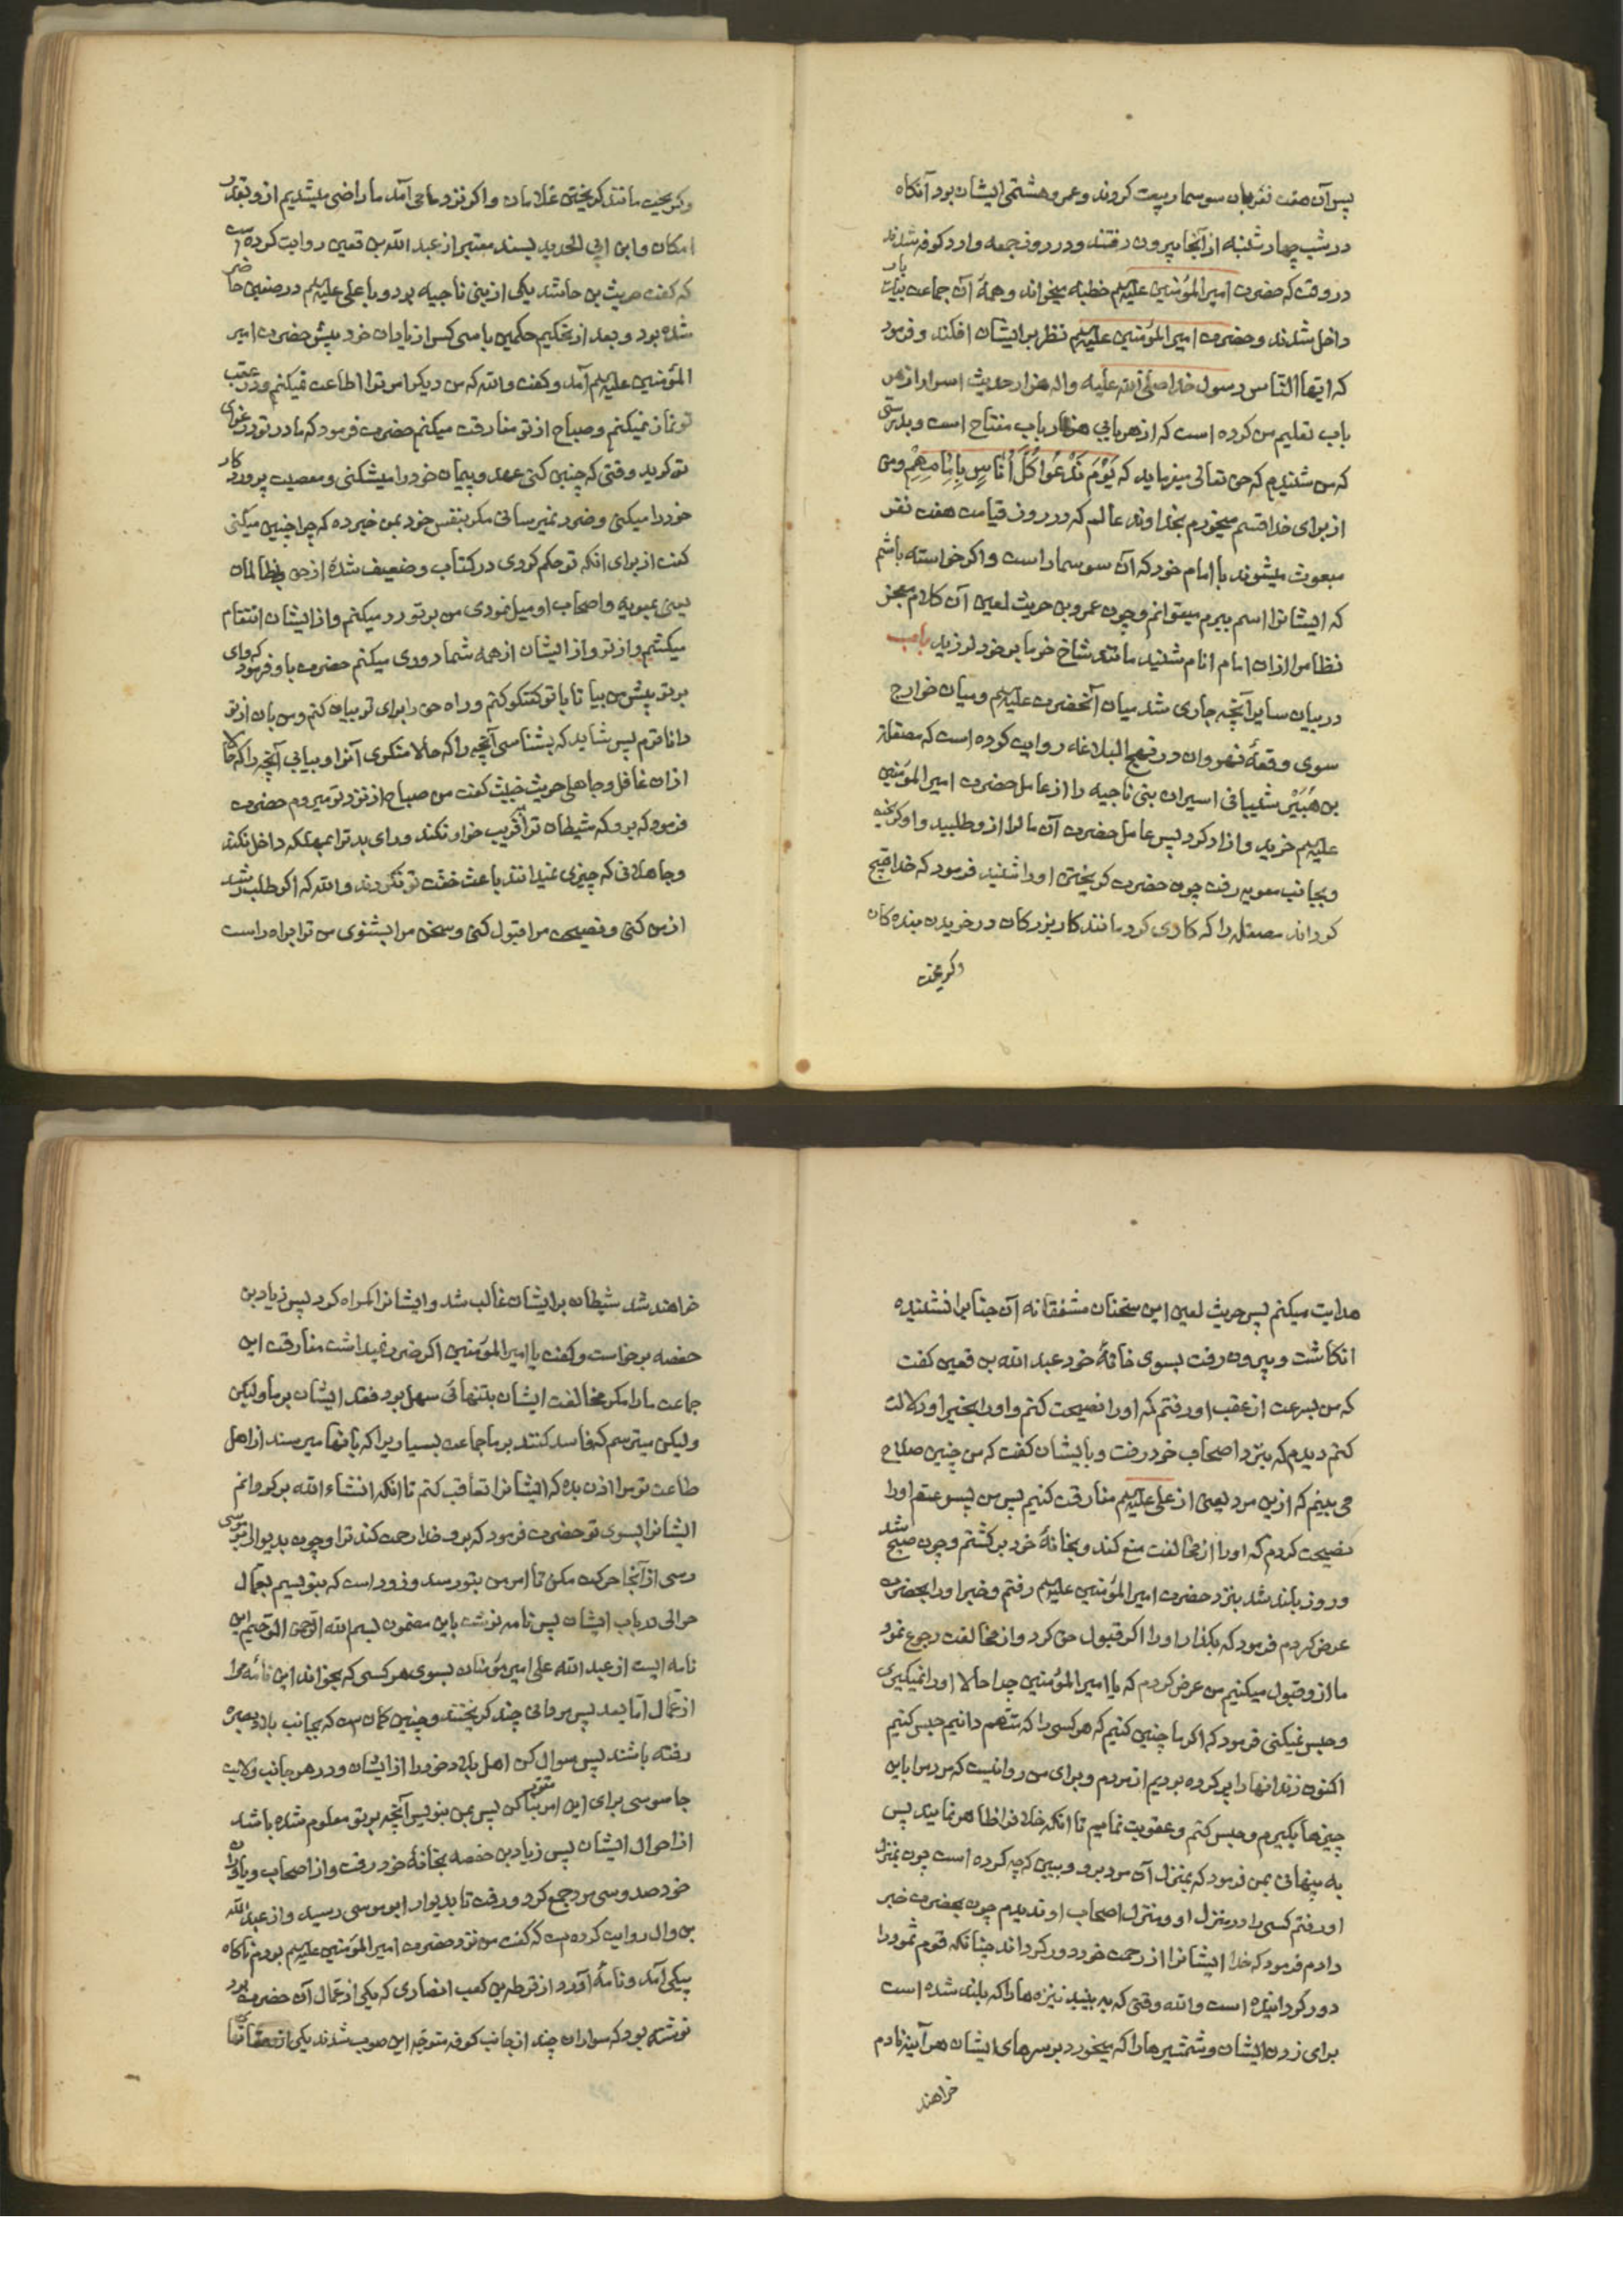 پس آن هفت نفر بان سوسمار بیعت کردند و عمرو هشتمی ایشان بود آنکاه
در شب چهار شنبه از آنجا بیرون رفتند و در روز جمعه وارد کوفه شدند
در وقتی که حضرت امیر المؤمنین علیه السلم خطبه میخواند و همهٔ آن جماعت بیکبار
داخل شدند و حضرت امیر المؤمنین علیه السلم نظر بر ایشان افکند و فرمود
که ایها الناس رسول خدا صلی الله علیه واله هزار حدیث اسرار از هر
باب تعلیم من کرده است که از هر بابی هزار باب مفتاح است و بدرستی
که من شنیدم که حق تعالی میفرماید که یَوْمَ نَدْعُوا کُلَّ أُنَاسٍ بِإِمَامِهِمْ و من
از برای خدا قسم میخورم بخداوند عالم که در روز قیامت هفت نفر
مبعوث میشوند با امام خود که آن سوسمار است و اکر خواسته باشم
که ایشانرا اسم ببرم میتوانم و چون عمرو بن حریث لعین آن کلام معجز
نظام را از ان امام انام شنید مانند شاخ خرما بر خود لرزید باب
در بیان سایر آنچه جاری شد میان آنحضرت علیه السلم و میان خوارج
سوی وقعهٔ نهروان در نهج البلاغه روایت کرده است که مصقلة
بن هُبَیْر شیبانی اسیران بنی ناجیه را از عامل حضرت امیر المؤمنین
علیه السلم خرید و ازاد کرد پس عامل حضرت آن مال را از و طلبید و او کریخت
و بجانب معویه رفت چون حضرت کریختن او را شنید فرمود که خدا قبیح
کرداند مصقله را که کاری کرد مانند کار بزرکان در خریدن بنده کان
و کریخت
و کریخت مانند کریختن غلامان و اکر نزد ما می آمد ما راضی میشدیم از و بقدر
امکان و ابن ابی الحدید بسند معتبر از عبد الله بن قعین روایت کرده است
که کفت حریث بن راشد یکی از بنی ناجیه بود و با علی علیه السلم در صفین حاضر
شده بود و بعد از تحکیم حکمین با سی کس از یاران خود پیش حضرت امیر
المؤمنین علیه السلم آمد و کفت والله که من دیکر امر ترا اطاعت نمیکنم و در عقب
تو نماز نمیکنم و صباح از تو مفارقت میکنم حضرت فرمود که مادر تو در عزای
تو کرید وقتی که چنین کنی عهد و پیمان خود را میشکنی و معصیت پروردکار
خود را میکنی و ضرر نمیرسانی مکر بنفس خود بمن خبر ده که چرا چنین میکنی
کفت از برای انکه تو حکم کردی در کتاب و ضعیف شدهٔ از حق و بظالمان
یعنی بمعویه و اصحاب او میل نمودی من بر تو رد میکنم و از ایشان انتقام
میکشم و از تو و از ایشان از همه شما دوری میکنم حضرت باو فرمود که وای
بر تو پیش من بیا تا با تو کفتکو کنم و راه حق را برای تو بیان کنم و من بان از تو
داناترم پس شاید که بشناسی آنچه را که حالا منکری آنرا و بیابی آنچه را که حالا
از ان غافل و جاهلی حریث خبیث کفت من صباح از نزد تو میروم حضرت
فرمود که برو که شیطان ترا فریب خواد نکند و رای بد ترا بمهلکه داخل نکند
و جاهلانی که چیزی نمیدانند باعث خفت تو نکردند والله که اکر طلب رشد
از من کنی و نصیحت مرا قبول کنی و سخن مرا بشنوی من ترا براه راست
هدایت میکنم پس حریث لعین این سخنان مشفقانه آن جنابرا نشنیده
انکاشت و بیرون رفت بسوی خانهٔ خود عبد الله بن قعین کفت
که من بسرعت از عقب او رفتم که او را نصیحت کنم و او را بخیر او دلالت
کنم دیدم که بنزد اصحاب خود رفت و بایشان کفت که من چنین صلاح
می بینم که ازین مرد یعنی از علی علیه السلم مفارقت کنیم پس من پسر عم او را
نصیحت کردم که او را از مخالفت منع کند و بخانهٔ خود برکشتم و چون صبح شد
و روز بلند شد بنزد حضرت امیر المؤمنین علیه السلم رفتم و خبر او را بحضرت
عرض کردم فرمود که بکذار او را اکر قبول حق کرد و از مخالفت رجوع نمود
ما از و قبول میکنیم من عرض کردم که یا امیر المؤمنین چرا حالا او را نمیکیری
و حبس نمیکنی فرمود که اکر ما چنین کنیم که هر کسی را که متهم دانیم حبس کنیم
اکنون زندانها را پر کرده بودیم از مردم و برای من روا نیست که مردم را باین
چیزها بکیرم و حبس کنم و عقوبت نمایم تا انکه خلافرا ظاهر نمایند پس
به پنهانی بمن فرمود که بمنزل آن مرد برو و ببین که چه کرده است چون بمنزل
او رفتم کسی را در منزل او و منزل اصحاب او ندیدم چون بحضرت خبر
دادم فرمود که خدا ایشانرا از رحمت خود دور کرداند چنانکه قوم ثمود را
دور کردانیده است والله وقتی که به بینید نیزه ها را که بلند شده است
برای زدن ایشان و شمشیرها را که میخورد بر سرهای ایشان هر آینه نادم
خواهند
خواهند شد شیطان بر ایشان غالب شد و ایشانرا کمراه کرد پس زیاد بن
حفصه برخواست و کفت یا امیر المؤمنین اکر ضرر نمیداشت مفارقت این
جماعت ما را مکر مخالفت ایشان بتنهائی سهل بود فقد ایشان بر ما ولیکن
ولیکن میترسم که فاسد کنند بر ما جماعت بسیاریرا که بانها میرسند از اهل
طاعت تو مرا اذن بده که ایشانرا تعاقب کنم تا انکه انشاء الله بر کردانم
ایشانرا بسوی تو حضرت فرمود که برو خدا رحمت کند ترا و چون بدیر ابو موسی
رسی از آنجا حرکت مکن تا امر من بتو رسد و زود است که بنویسم بعمال
حوالی در باب ایشان پس نامه نوشت باین مضمون بسم الله الرحمن الرحیم این
نامه ایست از عبد الله علی امیر مؤمنان بسوی هر کسی که بخواند این نامهٔ مرا
از عمال اما بعد پس مردمانی چند کریختند و چنین کمان من است که بجانب بلاد بصره
رفته باشند پس سوال کن اهل بلاد خود را از ایشان و در هر جانب ولایت
جاسوسی برای این امر تعیین کن پس بمن بنویس آنچه بر تو معلوم شده باشد
از احوال ایشان پس زیاد بن حفصه بخانهٔ خود رفت و از اصحاب و یاران
خود صد و سی مرد جمع کرد و رفت تا بدیر ابو موسی رسید و از عبد الله
بن وال روایت کرده است که کفت من نزد حضرت امیر المؤمنین علیه السلم بودم ناکاه
پیکی آمد و نامهٔ آورد از قرظه بن کعب انصاری که یکی از عمال آن حضرت بود
نوشته بود که سواران چند از جانب کوفه متوجه این صوب شدند یکی از دهقانان